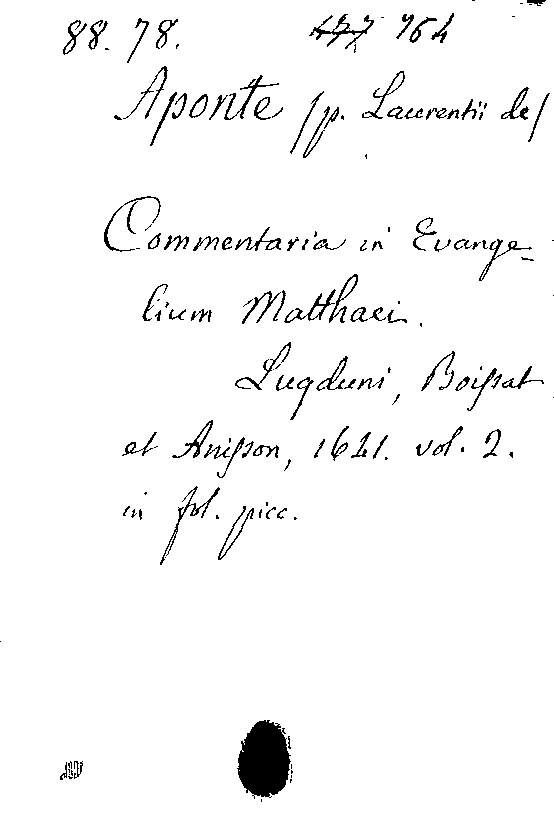 88. 78. 477 764
Aponte /p. Laurentii de/
Commentaria in Evange-
lium Matthaei.
Lugduni, Boissat
et Anisson, 1641. vol. 2.
in fol. picc.